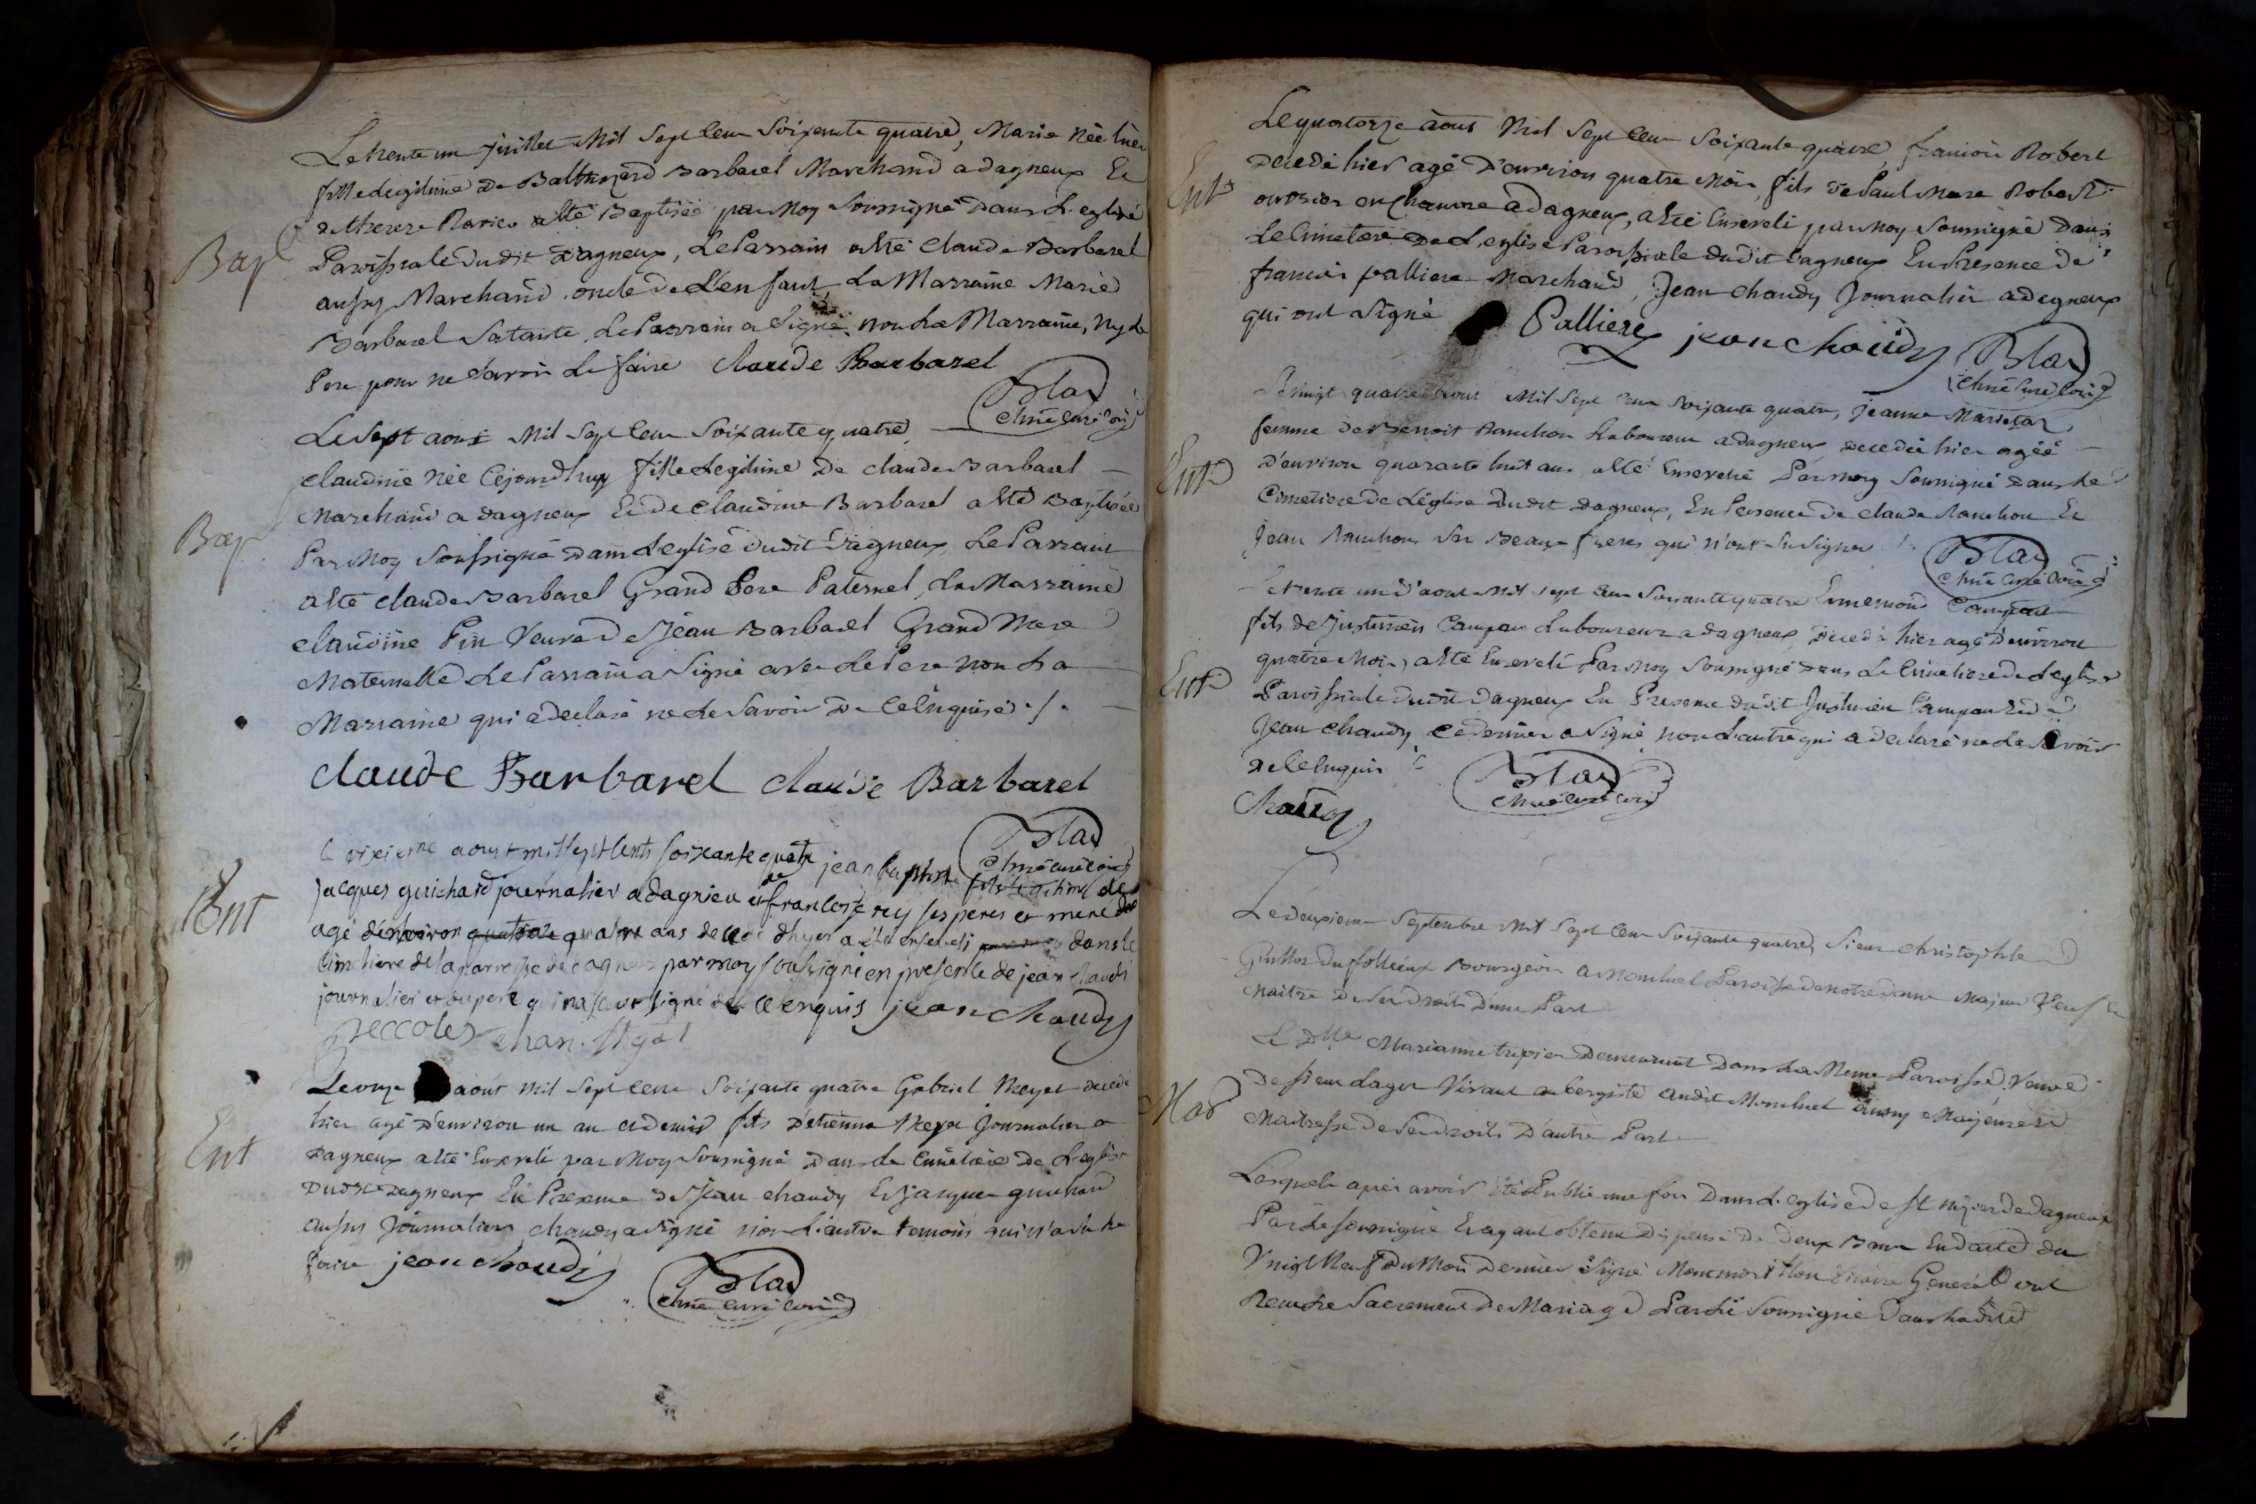 Le trente un juillet Mil Sept Cens Soixante quatre, Marie Née hier
fille legitime de Balthazard Barbarel Marchand a dagneux Et
a été Baptisée par Moy Soussigné Dans L'eglise
Paroissiale dudit Dagneux, Le Parrain a été Claude Barbarel
aussy Marchand oncle de L'enfant, La Marraine Marie
Barbarel Sa tante, Le Parrain a Signé non La Marraine, Ny Le
Pere pour ne Savoir Le faire Claude Barbarel
Bap
Blad
chne curé
Le Sept aout Mil Sept Cens Soixante quatre
claudine Née Cejourdhuy fille Legitime De claude Barbarel
Marchand a dagneux Et de Claudine Barbarel a été Baptisée
Par Moy Soussigné Dans L'eglise dudit Dagneux, Le Parrain
Bap
a été claude Barbarel Grand Pere Paternel, La Marraine
claudine Pin Veuve de Jean Barbarel Grand Mere
Maternelle Le Parrain a Signé avec Le Pere non La
Marraine qui a declaré ne Le Savoir De Ce Enquise ./.
claude Barbarel claude Barbarel
Blad
chne curé
Le dixieme aoust mil sept cents soixante quatre jean baptiste fils legitime de
Jacques guichard journalier a dagnieu et de francoise rey ses peres et mere
Ent
agé d'environ quatorze quatre ans decedé dhyer a été enseveli par moy dans le
cimetiere de la parroisse de dagneu par moy soussigné en presence de jean chaudi
journalier et du pere qui n'a sceu signé de ce enquis jean chaudy
Leccoles chan.
Le onze aout Mil Sept Cens Soixante quatre Gabriel Meyet decedé
hier agé D'environ un an et demis fils D'etienne Meyet Journalier a
Ent
Dagneux a été Enseveli par Moy Soussigné Dans Le Cimetiere De L'eglise
Dudit Dagneux En Presence de Jean chaudy Et Jacques guichard
aussy Journaliers chaudy a Signé non L'autre temoins qui n'a su Le
faire jean chaudy
Blad
chne curé
Le quatorze aout Mil Sept Cens Soixante quatre, francois Robert
Decedé hier agé D'environ quatre Mois, fils De Paul Robert
Ent
ouvrier en Chanvre a Dagneux, a été Enseveli par Moy Soussigné Dans
Le Cimetiere De L'eglise Paroissiale dudit Dagneux En Presence De
francois palliere Marchand, Jean chaudy Journalier a dagneux
qui ont Signé Palliere jean chaudy
Blad
chne curé
vingt quatre aout Mil Sept Cens Soixante quatre, Jeanne
femme de Benoit Ranchon Laboureur a dagneux decedée hier agée
Ent
D'environ quarante huit ans a été Ensevelie Par Moy Soussigné Dans Le
Cimetiere De L'église Dudit Dagneux, En Presence De claude Ranchon Et
Jean Ranchon Ses Beaux freres qui n'ont Su Signer
Blad
chne curé
Le trente un D'aout Mil Sept Cens Soixante quatre Campan
fils de Justinien Campan Laboureur a dagneux, Decedé hier agé D'environ
quatre Mois, a été Enseveli Par Moy Soussigné Dans Le Cimetiere De L'eglise
Ent
Paroissiale Dudit Dagneux En Presence dudit Justinien Campan Et De
Jean chaudy Ce dernier a Signé non L'autre qui a declaré ne Le Savoir
De Ce Enquis
Blad
chne curé
Chaudy
Le Deuxieme Septembre Mil Sept Cens Soixante quatre, Sieur Christophle
Bourgeois a Montluel Paroisse De notre Dame Majeur Et
Maitre De Ses Droits D'une Part
Et Dlle Marianne trepier Demeurant Dans La Meme Paroisse Veuve
De Sieur Vivant aubergiste audit Montluel aussy Majeure Et
Mar
Maitresse De Ses Droits D'autre Part
Lesquels apres avoir été Publié une fois Dans L'eglise De St De Dagneux
Par Le Soussigné Et ayant obtenu Dispense De Deux Bans En datte du
Vingt Neuf Du Mois Dernier Signé vicaire General ont
Recu Le Sacrement De Mariage Par Le Soussigné Dans La dite